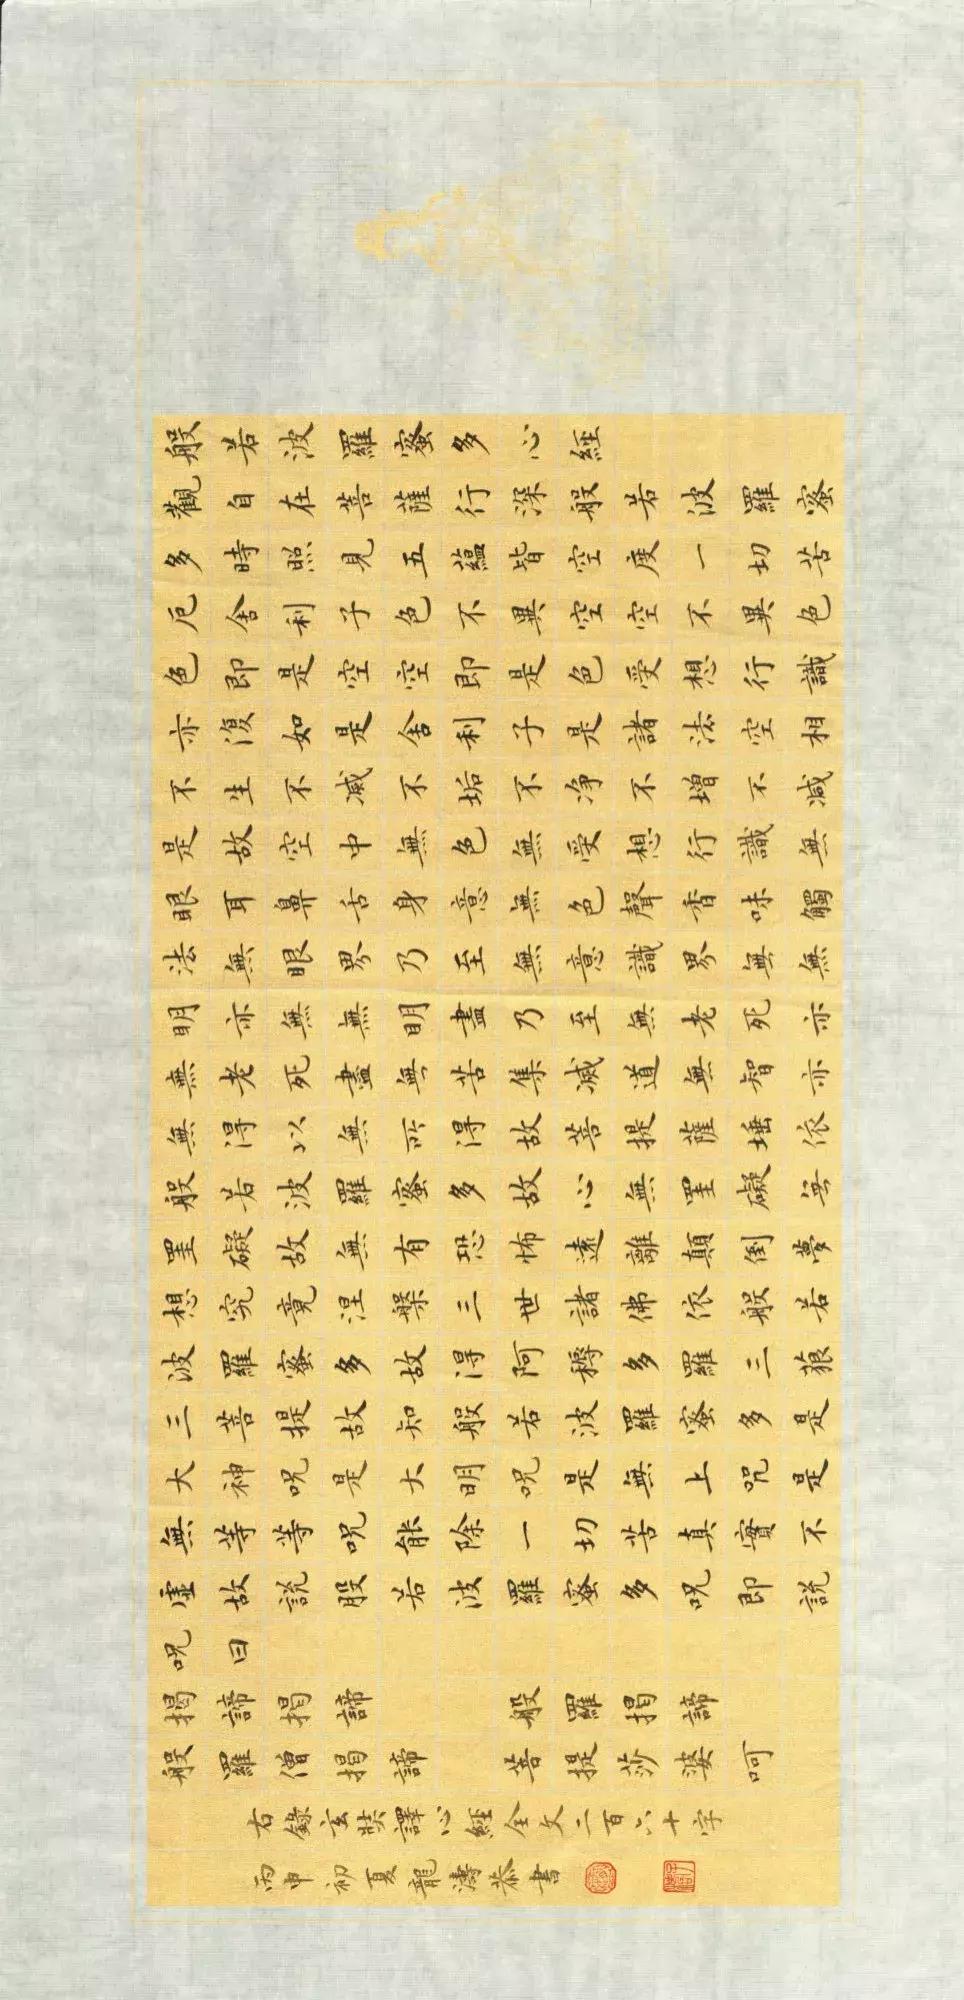 般若波羅蜜多心經
觀自在菩薩行深般若波羅蜜
多時照見五蘊皆空度一切苦
厄舍利子色不異空空不異色
色即是空空即是色受想行識
亦復如是舍利子是諸法空相
不生不滅不垢不净不增不減
是故空中無色無受想行識無
眼耳鼻舌身意無色聲香味觸
法無眼界乃至無意識界無無
明亦無無明盡乃至無老死亦
無老死盡無苦集滅道無智亦
無得以無所得故菩提薩埵依
般若波羅蜜多故心無罣礙无
罣礙故無有恐怖遠離顛倒夢
想究竟涅槃三世諸佛依般若
波羅蜜多故得阿耨多羅三藐
三菩提故知般若波羅蜜多是
大神呪是大明呪是無上咒是
無等等呪能除一切苦真實不
虛故說般若波羅蜜多呪即說
呪曰
揭諦揭諦 般羅揭諦
般羅僧揭諦 菩提莎婆呵
右錄玄奘譯心經全文二百六十字
丙申初夏龍濤恭書